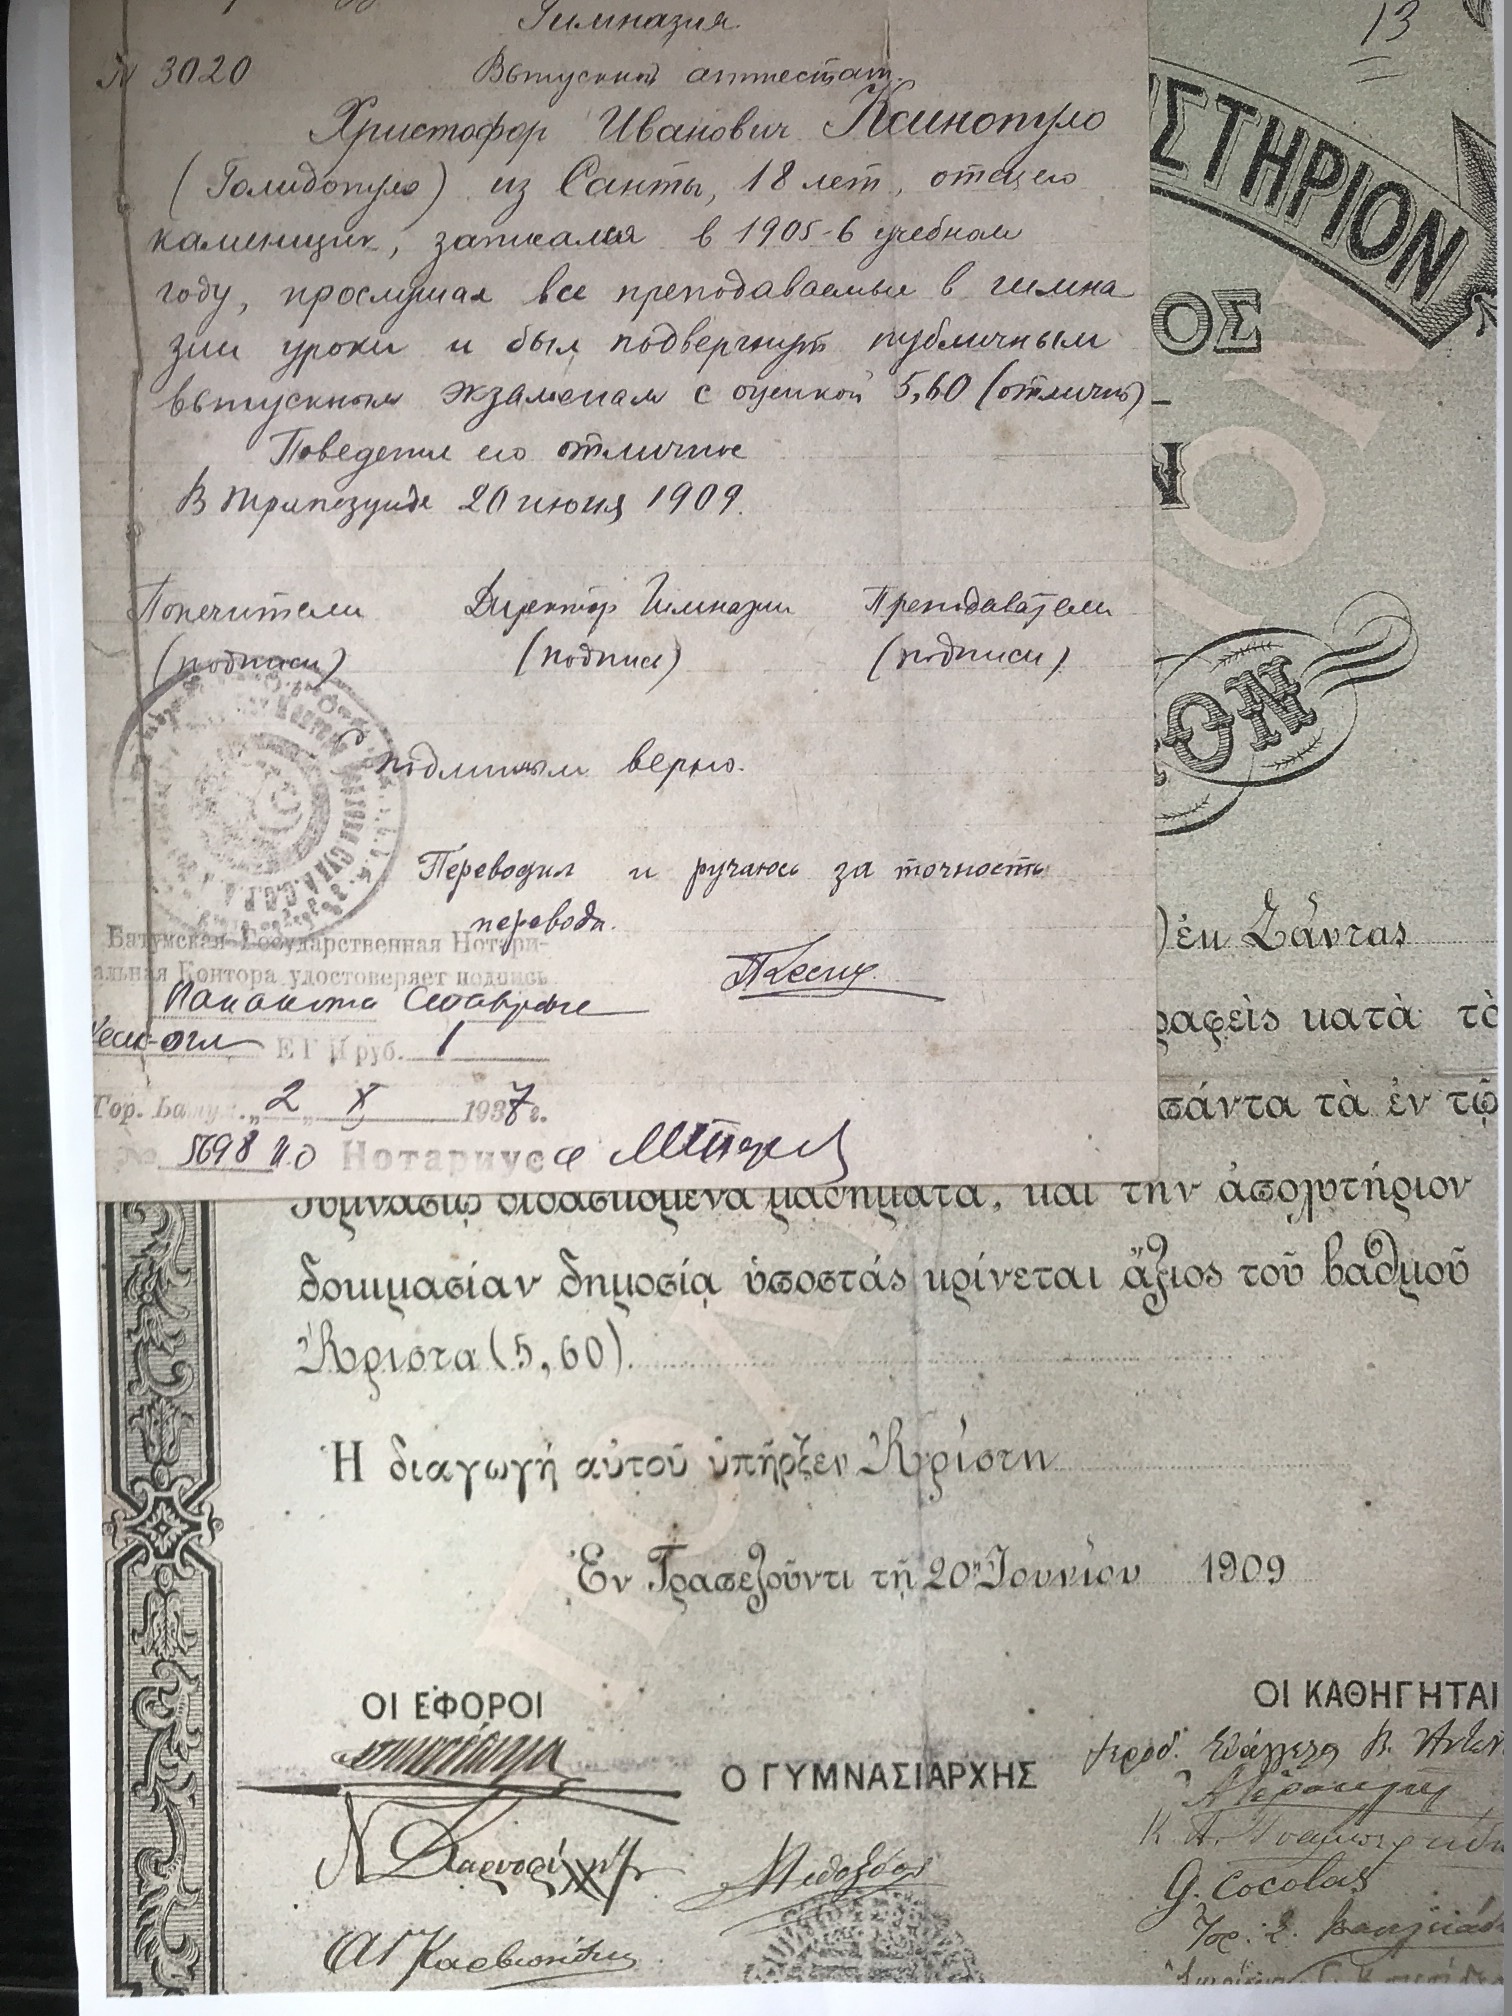 13
Гимназия.
№ 3020
Выпускной аттестат.
Христофор Иванович Ксинопуло
(Голидопуло) из Санты, 18 лет, отец его
каменщик, записался в 1905-6 учебном
году, прослушал все преподаваемые в гимна
зии уроки и был подвергнут публичным
выпускным экзаменам с оценкой 5,60 (отлично)
Поведение его отличное
В Трапезунде 20 июня 1909.
Попечители Директор Гимназии Преподаватели
(подписи) (подпись) (подписи)
С подлинным верно.
Переводил и ручаюсь за точность
перевода.
Батумская Государственная Нотари-
альная Контора удостоверяет подпись
Панаиота Ставровича
Кеси-огли ЕГП руб. 1
Гор. Батум „2„ X 1937 г.
№ 5698 И.О Нотариуса
ΣΤΗΡΙΟΝ
ΟΣ
Ν
ΟΝ
) ἐκ Σάντας
ραφεὶς κατὰ τὸ
πάντα τὰ ἐν τῷ
Γυμνασίῳ διδασκόμενα μαθήματα, καὶ τὴν ἀπολυτήριον
δοκιμασίαν δημοσίᾳ ὑποστάς κρίνεται ἄξιος τοῦ βαθμοῦ
Ἄριστα (5,60).
Ἡ διαγωγή αὐτοῦ ὑπῆρξεν Ἀρίστη
Ἐν Τραπεζοῦντι τῇ 20ῃ Ἰουνίου 1909
ΟΙ ΕΦΟΡΟΙ
Ο ΓΥΜΝΑΣΙΑΡΧΗΣ
ΟΙ ΚΑΘΗΓΗΤΑΙ
G. Cocolas